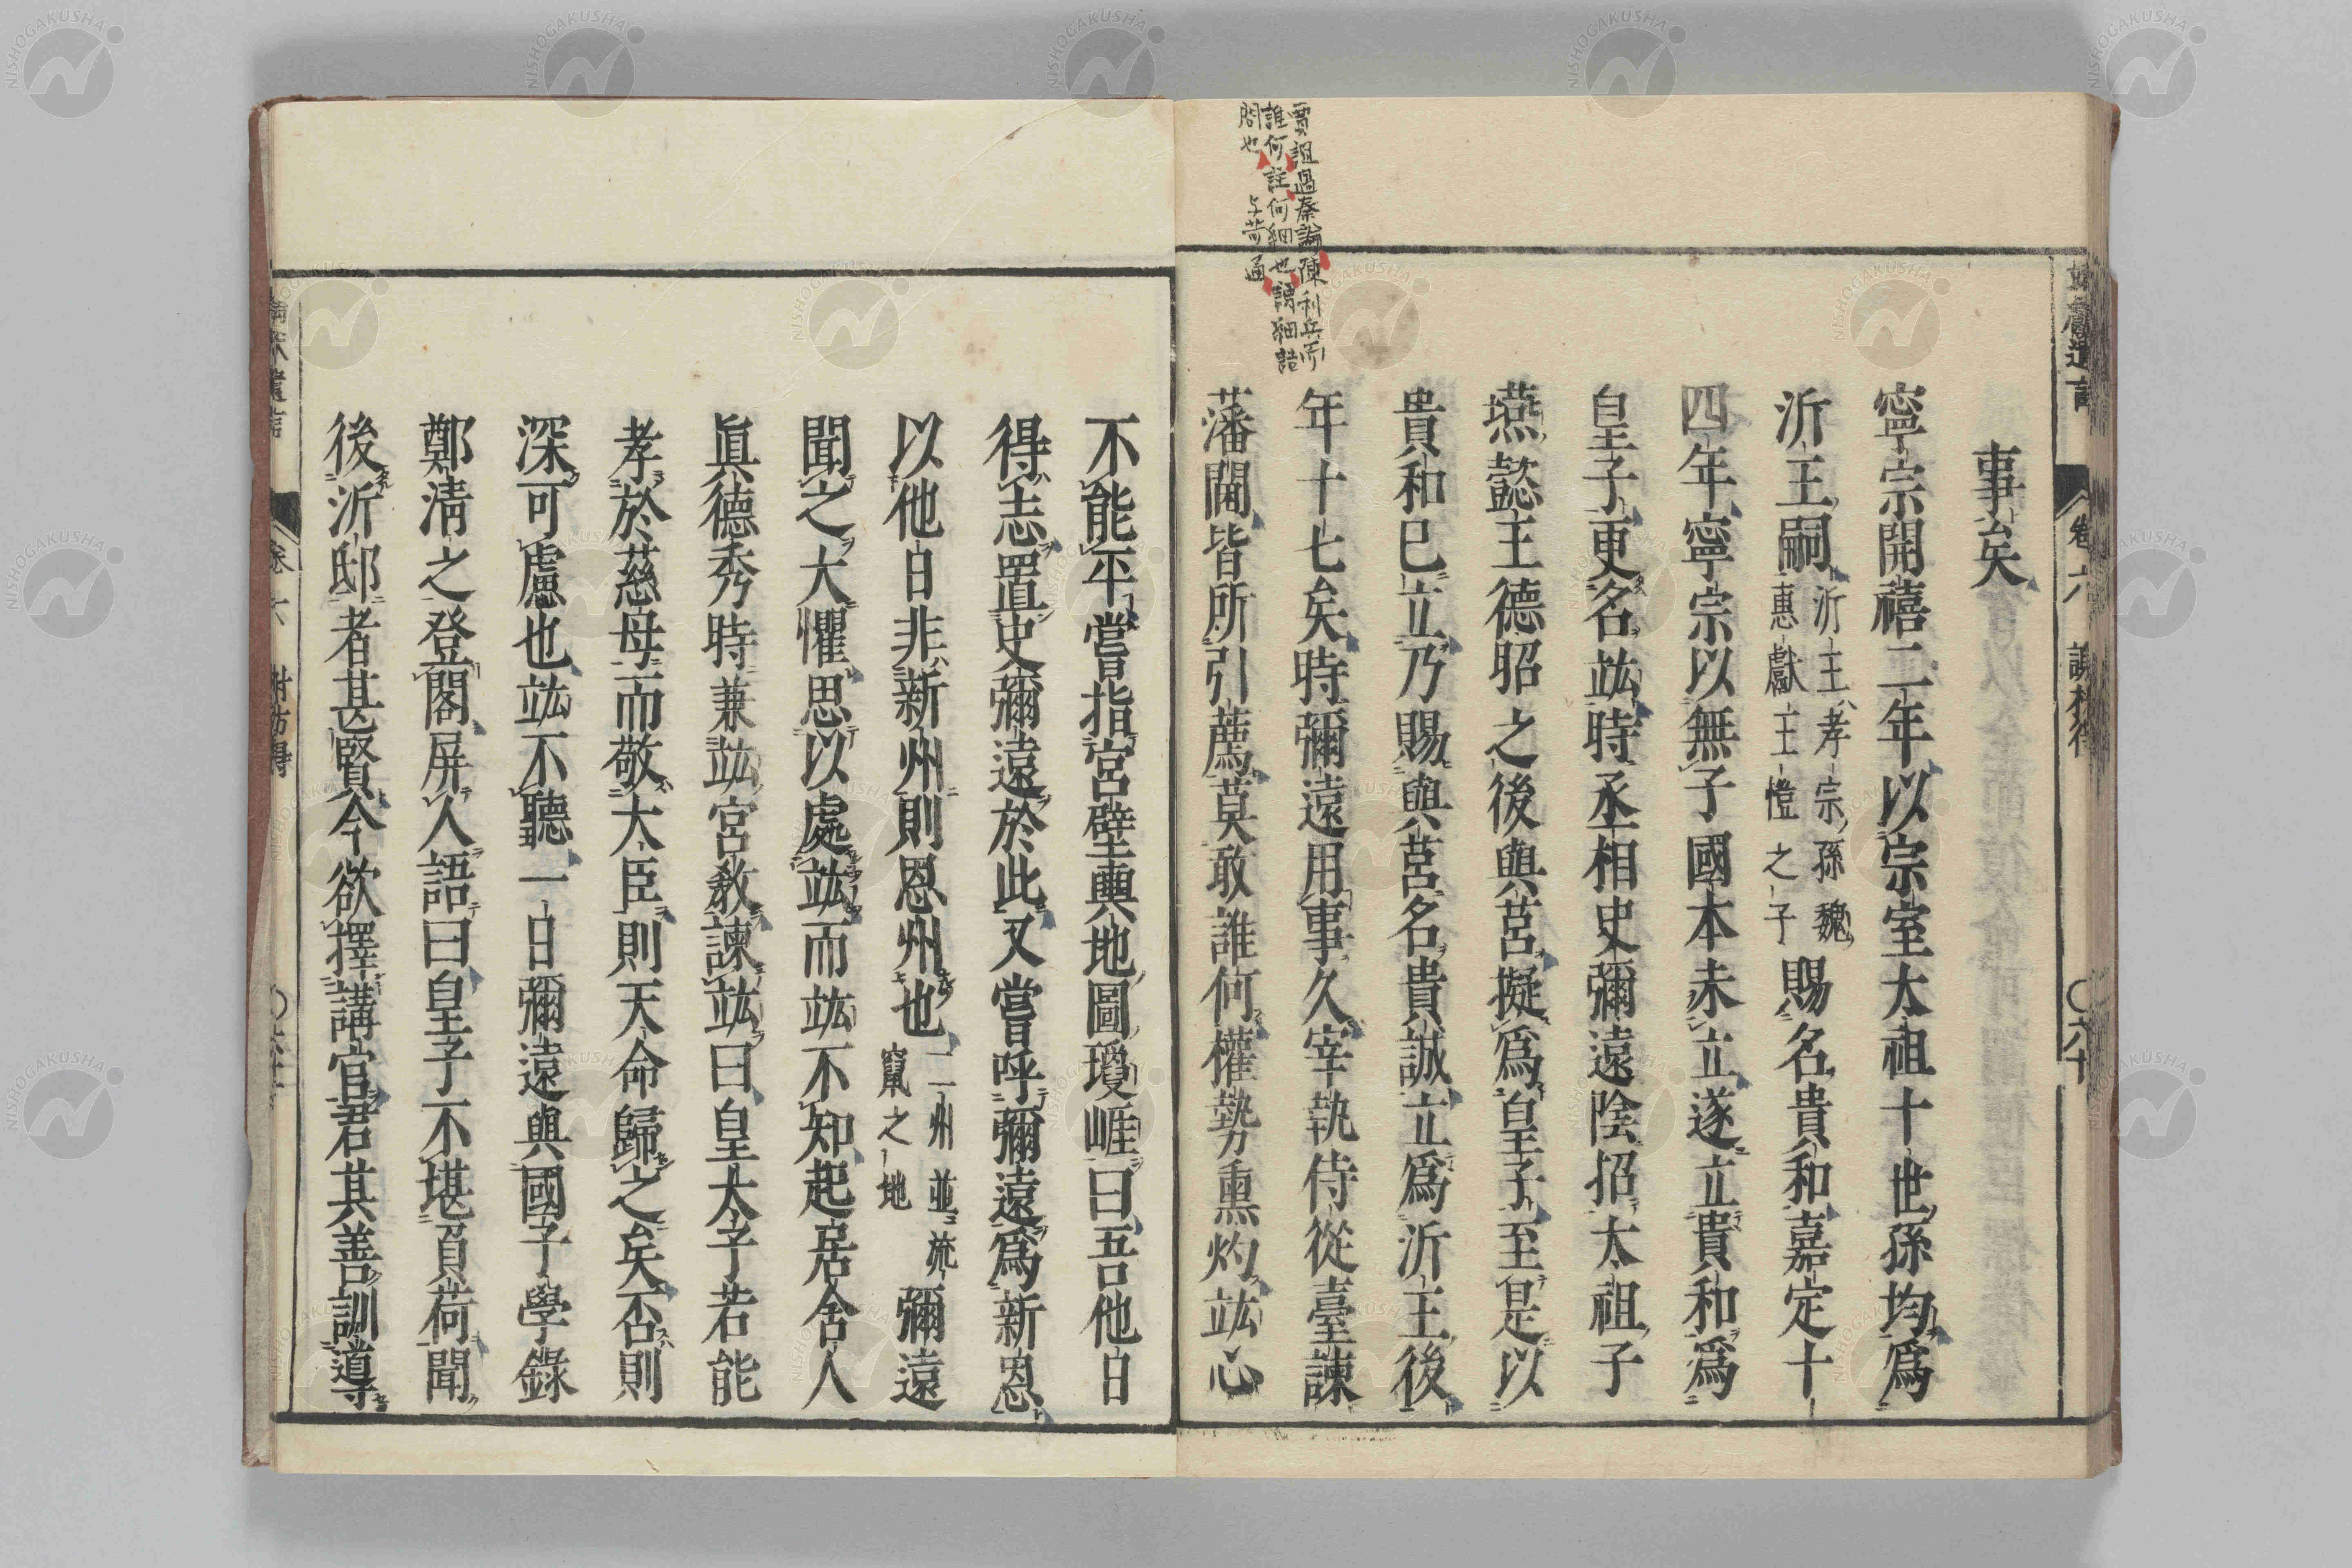 賈誼過秦論陳利兵而
誰何註何細也謂細詰
問也 与苛通
靖獻遺言
卷六
謝枋得
〇六十
事矣
寧宗開禧二年以宗室太祖十世孫均爲
沂王嗣沂王孝宗孫魏惠獻王愷之子賜名貴和嘉定十
四年寧宗以無子國本未立遂立貴和爲
皇子更名竑時丞相史彌遠陰招太祖子
燕懿王德昭之後與莒擬爲皇子至是以
貴和已立乃賜與莒名貴誠立爲沂王後
年十七矣時彌遠用事久宰執侍從臺諫
藩閫皆所引薦莫敢誰何權勢熏灼竑心
不能平嘗指宮壁輿地圖瓊崖曰吾他日
得志置史彌遠於此又嘗呼彌遠爲新恩
以他日非新州則恩州也二州並流竄之地彌遠
聞之大懼思以處竑而竑不知起居舍人
眞德秀時兼竑宮教諫竑曰皇太子若能
孝於慈母而敬大臣則天命歸之矣否則
深可慮也竑不聽一日彌遠與國子學錄
鄭清之登閣屏人語曰皇子不堪負荷聞
後沂邸者甚賢今欲擇講官君其善訓導